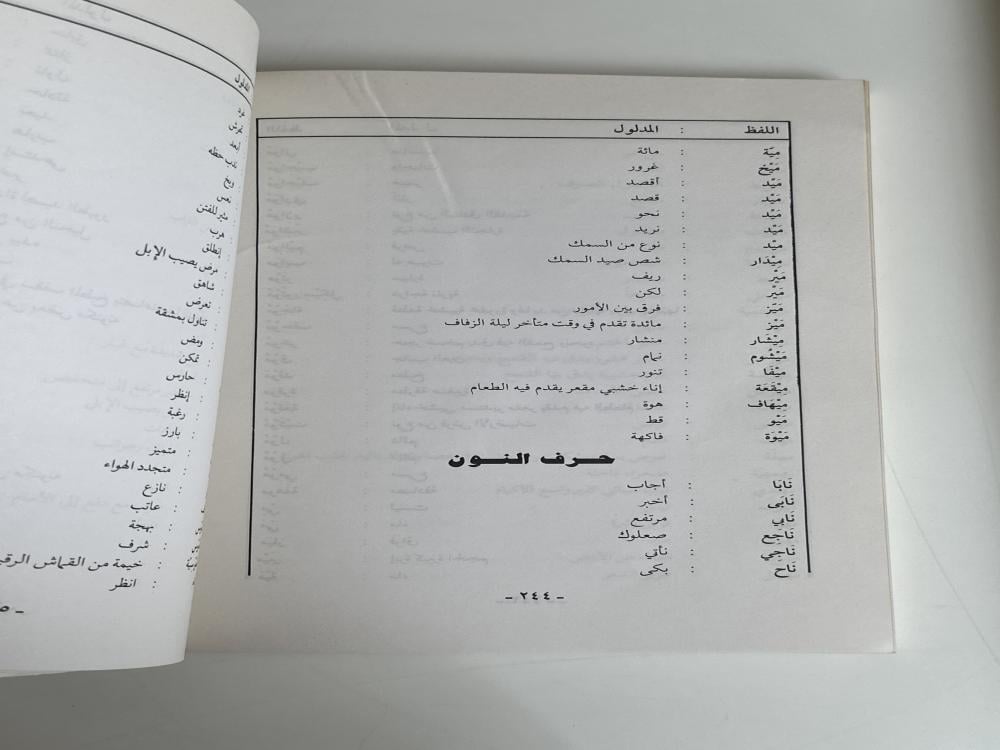 اللفظ : المدلول
مِيَّة : مائة
مَيْخ : غرور
مَيْد : أقصد
مَيْد : قصد
مَيْد : نحو
مَيْد : نريد
مِيْد : نوع من السمك
مِيْدَار : شص صيد السمك
مَيْر : ريف
مَيْر : لكن
مَيَّز : فرق بين الأمور
مَيْز : مائدة تقدم في وقت متأخر ليلة الزفاف
مِيْشَار : منشار
مَيْشُوم : نمام
مِيْفَا : تنور
مِيْقَعَة : إناء خشبي مقعر يقدم فيه الطعام
مِيْهَاف : هوة
مَيْو : قط
مَيْوَة : فاكهة
حرف النون
نَابَا : أجاب
نَابَى : أخبر
نَابي : مرتفع
نَاجع : صعلوك
نَاجي : نأتي
نَاح : بكى
- ٢٤٤ -
المدلول
أبعد
ندب حظه
مثير للفتن
هرب
إنطلق :
مرض يصيب الإبل :
شاهق :
تعرض :
تناول بمشقة :
ومض :
تمكن :
حارس :
إنظر :
رغبة :
بارز :
متميز :
متجدد الهواء :
نازع :
عاتب :
بهجة :
شرف :
خيمة من القماش :
انظر :